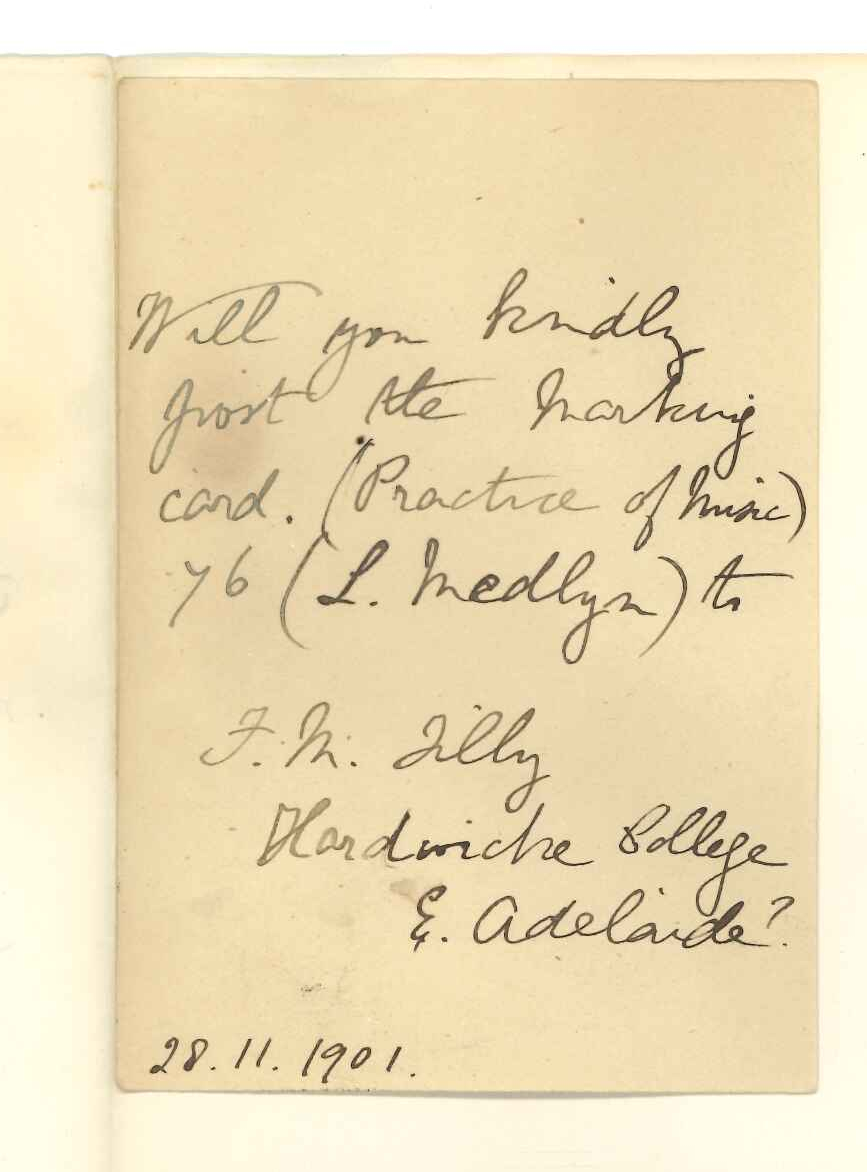 Will you kindly
post the marking
card. (Practice of Music)
76 (L. Medlyn) to
F. M. Tilly
Hardwicke College
E. Adelaide?
28.11.1901.